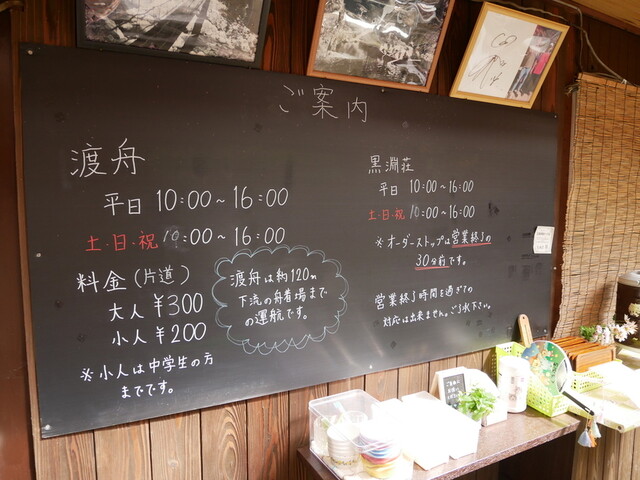 ご案内
渡舟
平日 10:00~16:00
土・日・祝 10:00~16:00
料金(片道)
大人 ¥300
小人 ¥200
※小人は中学生の方
までです。
渡舟は約120m
下流の舟着場まで
の運航です。
黒淵荘
平日 10:00~16:00
土・日・祝 10:00~16:00
※オーダーストップは営業終了の
30分前です。
営業終了時間を過ぎての
対応は出来ません。ご了承下さい。